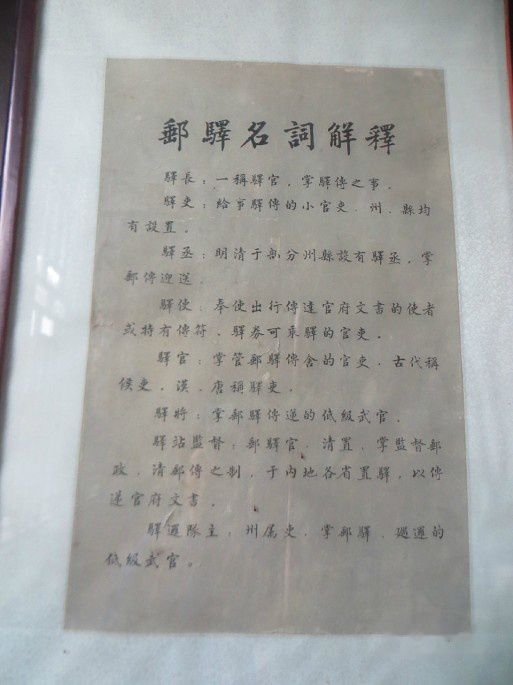 郵驛名詞解釋
驛長：一稱驛官，掌驛傳之事．
驛吏：給事驛傳的小官吏．州、縣均
有設置．
驛丞：明清于部分州縣設有驛丞，掌
郵傳迎送．
驛使：奉使出行傳達官府文書的使者
或持有傳符、驛券可乘驛的官吏．
驛官：掌管郵驛傳舍的官吏．古代稱
候吏．漢．唐稱驛吏．
驛將：掌郵驛傳遞的低級武官．
驛站監督：郵驛官．清置，掌監督郵
政．清郵傳之制，于内地各省置驛，以傳
遞官府文書．
驛邏隊主：州屬吏．掌郵驛．廵邏的
低級武官。